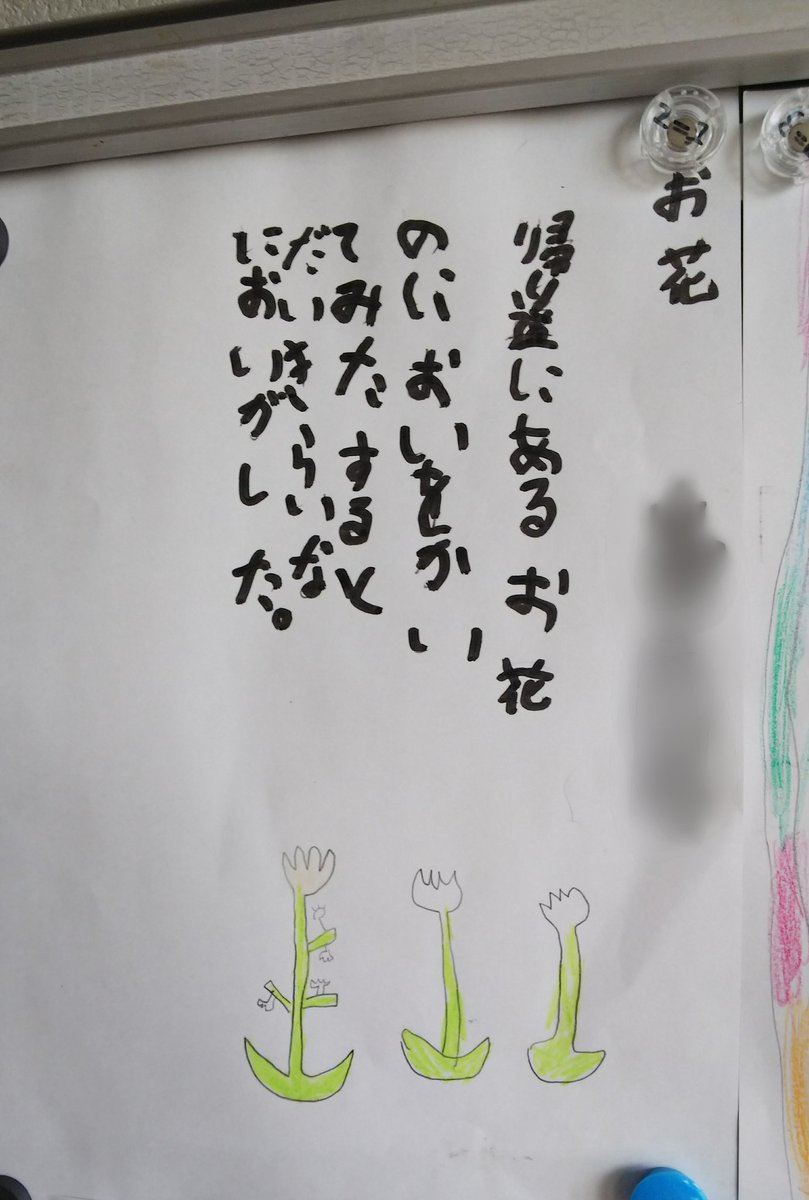 お花
帰り道にあるお花
のにおいをかい
てみたすると
だいきらいな
においがした。